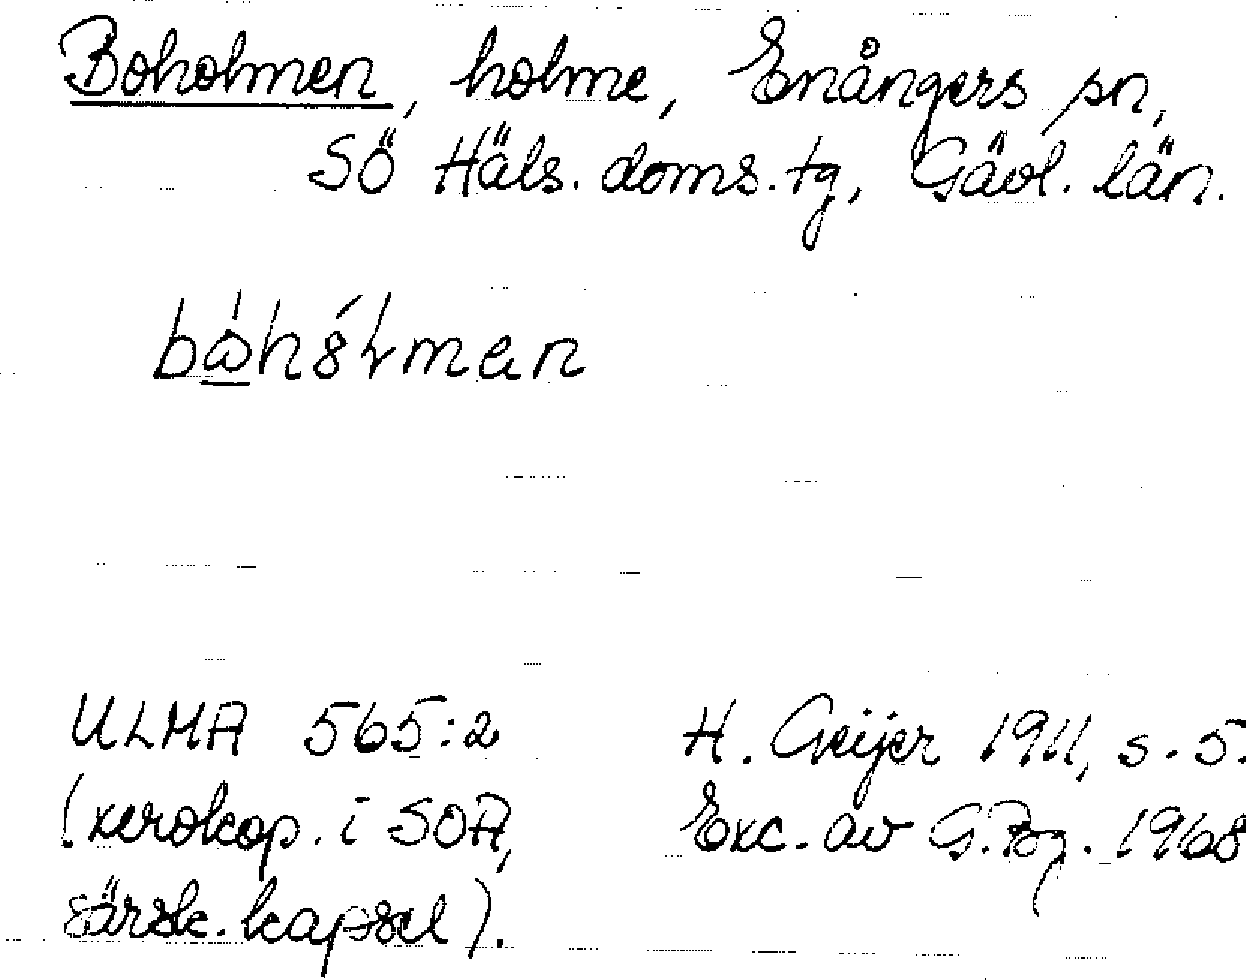 Boholmen, holme, Enångers sn,
Sö Häls. doms. tg, Gävl. län.
ULMA 565:2
(xerokop. i SOA,
särsk. kapsel).
H. Geijer 1911, s. 5.
Exc. av G. Bg. 1968